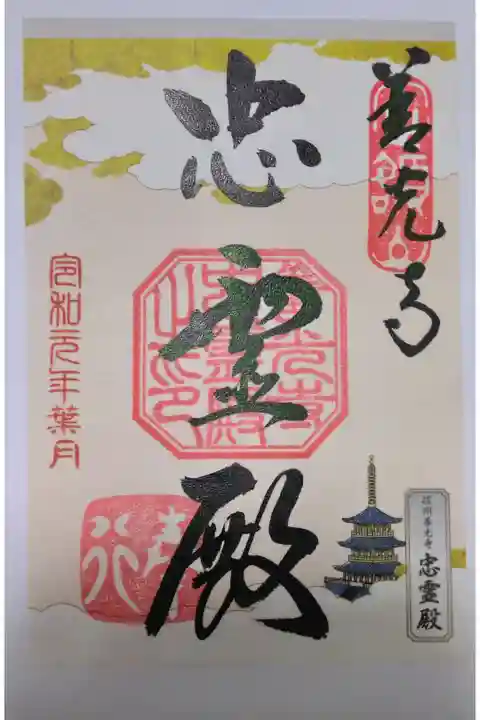 善光寺
忠霊殿
令和元年葉月
信州善光寺
忠霊殿